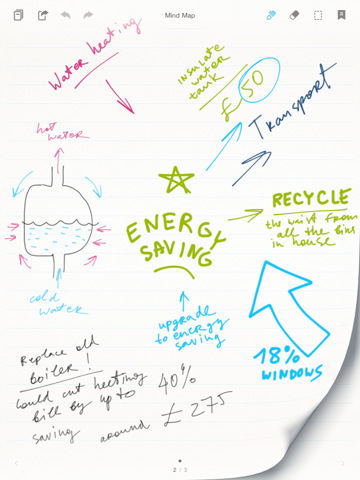 Mind Map
Water heating
insulate
water
tank
£50
Transport
hot
water
ENERGY
SAVING
RECYCLE
the waist from
all the bins
in house
cold
water
upgrade
to energy
saving
18%
WINDOWS
Replace old
boiler!
Could cut heeting
bill by up to 40%
saving around £275
2 / 3